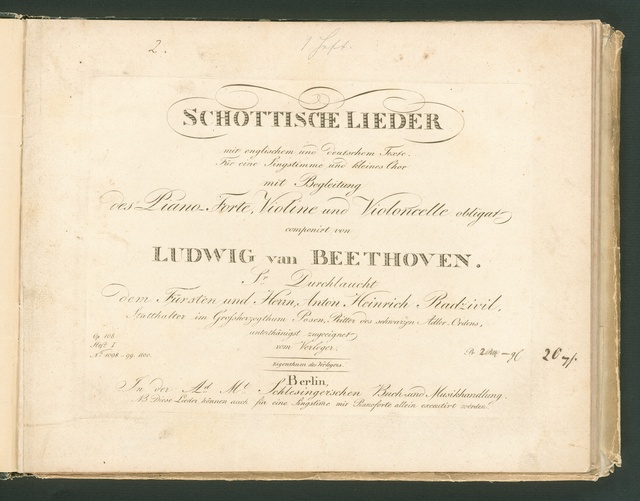 2.
1 Heft
SCHOTTISCHE LIEDER
mit englischem und deutschem Texte.
Für eine Singstimme und kleines Chor
mit Begleitung
des Piano-Forte, Violine und Violoncelle obligat
componirt von
LUDWIG van BEETHOVEN.
Sr. Durchlaucht
dem Fürsten und Herrn, Anton Heinrich Radzivil,
Statthalter im Grosherzogthum Posen, Ritter des schwarzen Adler Ordens,
unterthänigst zugeeignet
vom Verleger.
Op. 108.
Heft I
No. 1098-99. 1100.
Eigenthum des Verlegers.
Berlin,
In der Ad. Mt. Schlesingerschen Buch- und Musikhandlung.
NB. Diese Lieder können auch für eine Singstimme mit Pianoforte allein executirt werden.